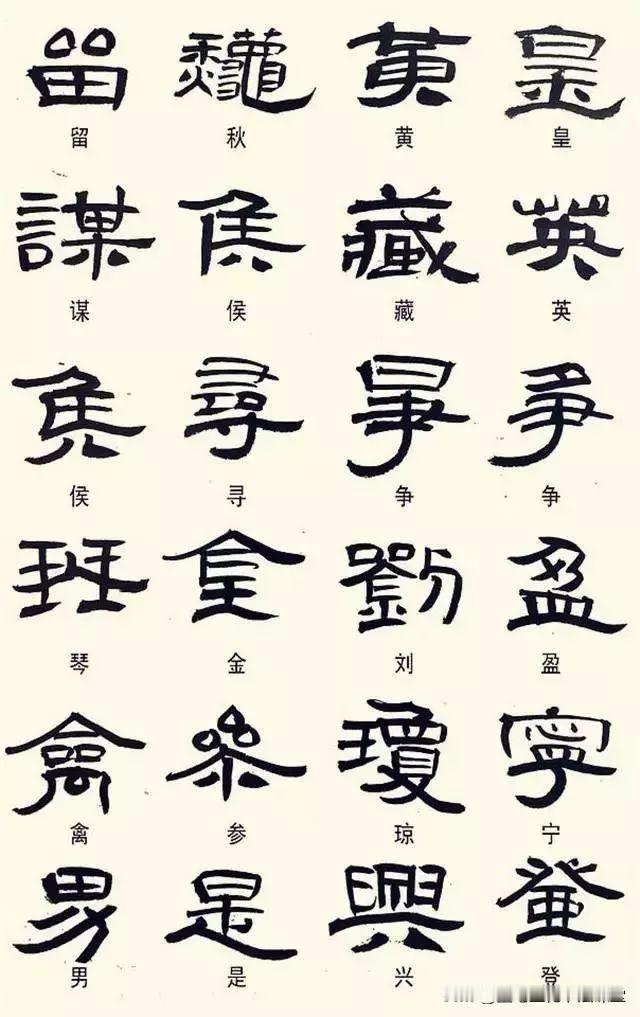 留 黃 皇
留 秋 黄 皇
謀 侯 藏 英
谋 侯 藏 英
侯 尋 爭 爭
侯 寻 争 争
金 劉 盈
琴 金 刘 盈
禽 參 瓊 寧
禽 参 琼 宁
男 是 興 登
男 是 兴 登